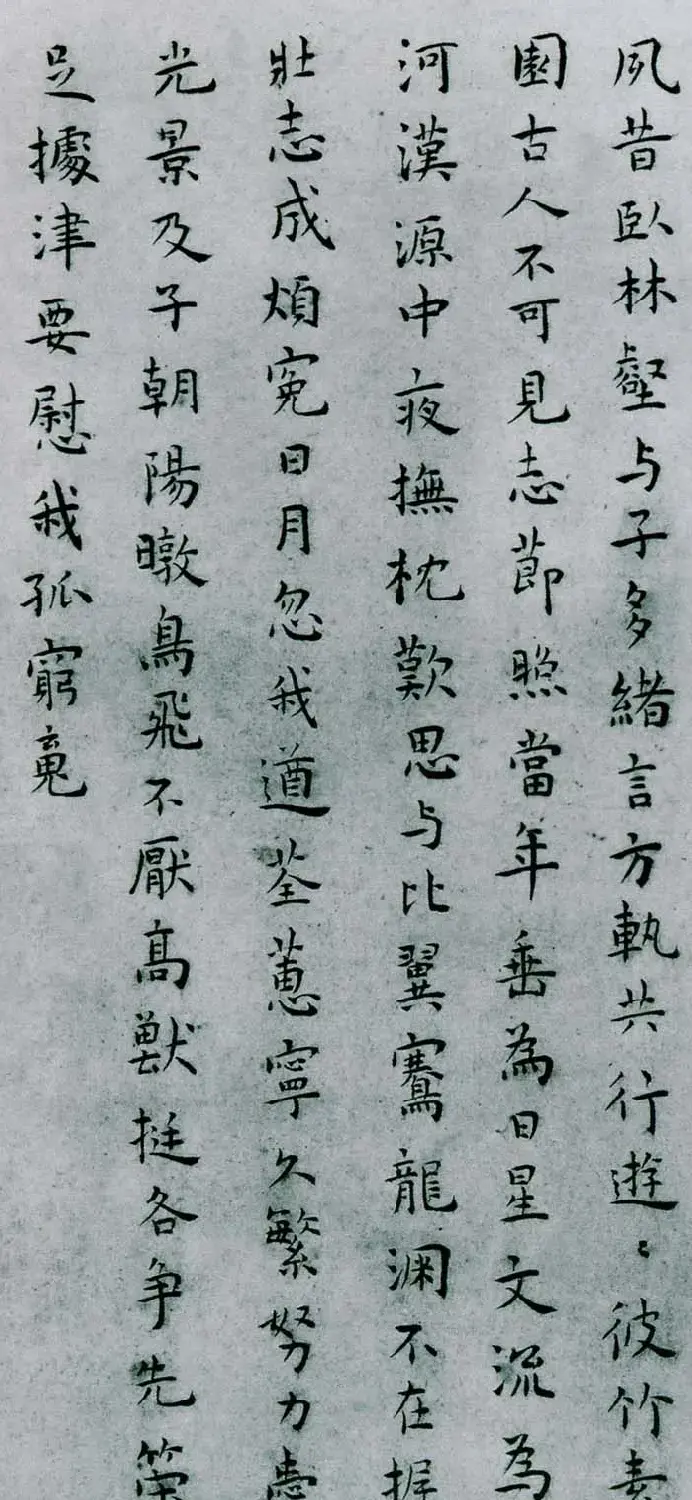 夙昔臥林壑与子多緒言方軌共行遊〻彼竹素
園古人不可見志節照當年垂為日星文流為
河漢源中夜撫枕歎思与比翼鶱龍淵不在握
壯志成煩冤日月忽我遒荃蕙寧久繁努力
光景及子朝陽暾鳥飛不厭高獸挺各争先策
足據津要慰我孤窮䰟